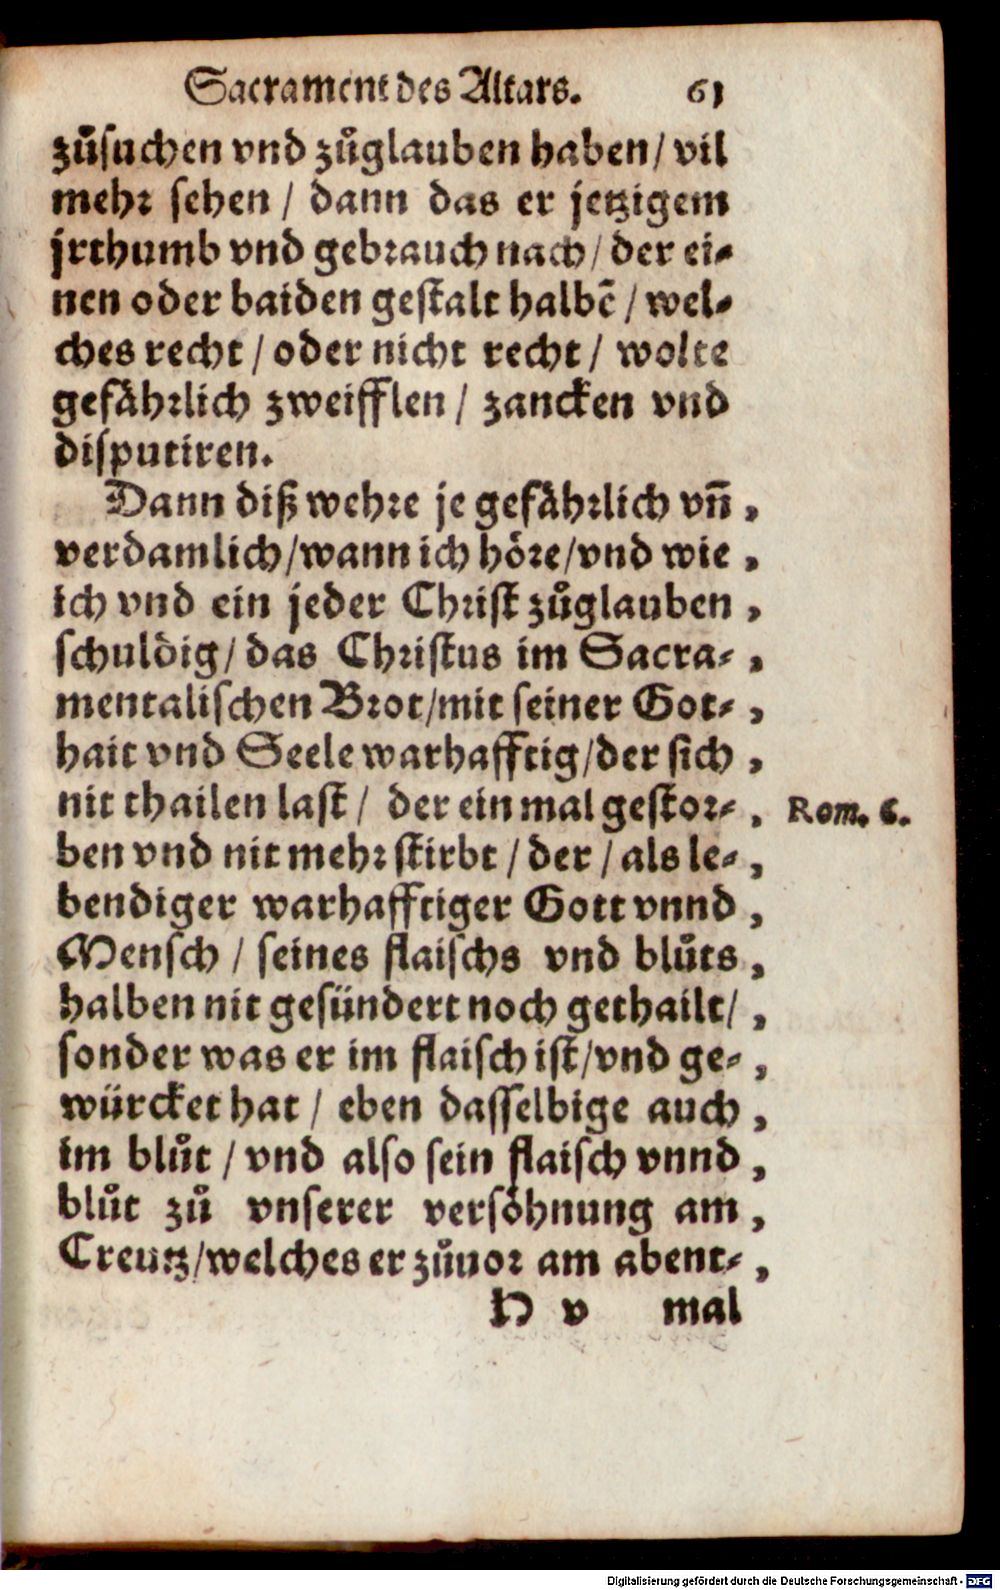 Sacrament des Altars. 61
zůsuchen vnd zůglauben haben / vil
mehr sehen / dann das er jetzigem
jrthumb vnd gebrauch nach / der ei-
nen oder baiden gestalt halbē / wel-
ches recht / oder nicht recht / wolte
gefährlich zweifflen / zancken vnd
disputiren.
Dann diß wehre je gefährlich vñ ,
verdamlich / wann ich höre / vnd wie ,
ich vnd ein jeder Christ zůglauben ,
schuldig / das Christus im Sacra- ,
mentalischen Brot / mit seiner Got- ,
hait vnd Seele warhafftig / der sich ,
nit thailen last / der ein mal gestor- , Rom. 6.
ben vnd nit mehr stirbt / der / als le- ,
bendiger warhafftiger Gott vnnd ,
Mensch / seines flaischs vnd blůts ,
halben nit gesündert noch gethailt / ,
sonder was er im flaisch ist / vnd ge- ,
würcket hat / eben dasselbige auch ,
im blůt / vnd also sein flaisch vnnd ,
blůt zů vnserer versöhnung am ,
Creutz / welches er zůuor am abent- ,
H v mal
Digitalisierung gefördert durch die Deutsche Forschungsgemeinschaft - DFG